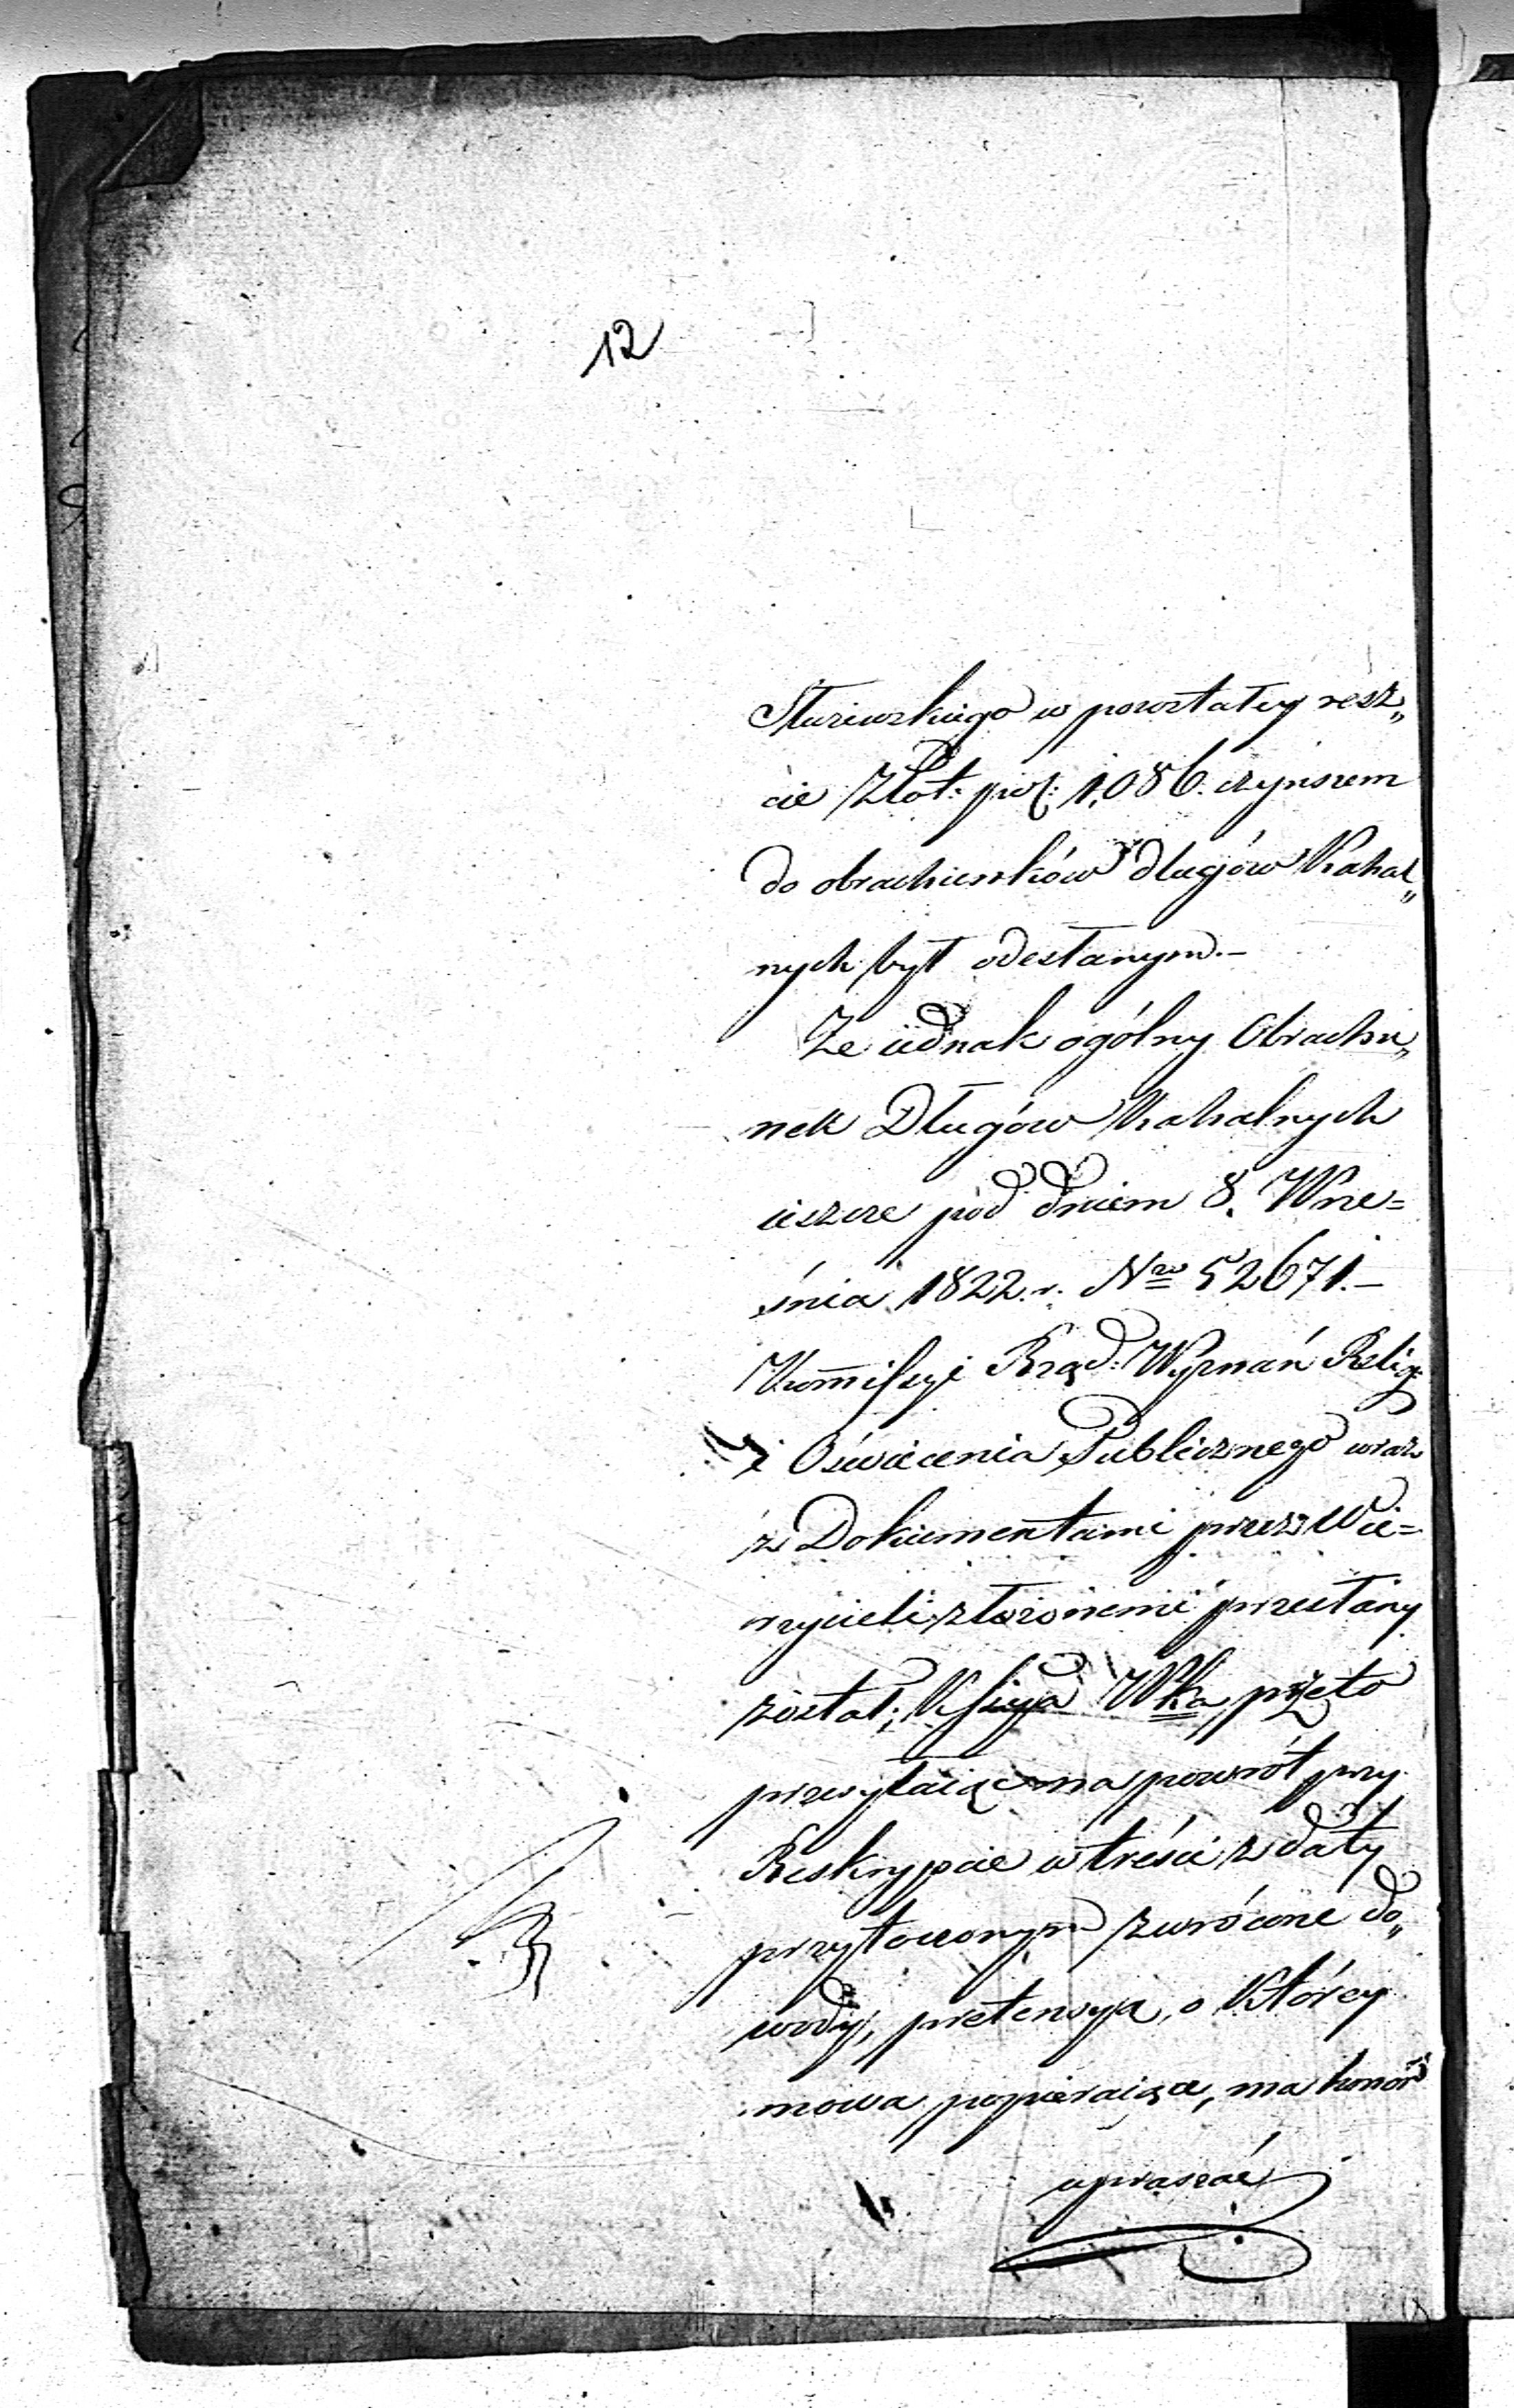 12
w powstałey resz„
cie Złot: pol: 1,086. czynszem
do obrachunków długów Kahal„
nych był odesłanym.—
Że iednak ogólny Obrachu„
nek Długów Kahalnych
ieszcze pod dniem 8. Wrze=
śnia 1822. r. Nro 52671.—
Kom̄issyi Rząd: Wyznań Relig:
i Oświecenia Publicznego wraz
z Dokumentami przez Wie=
rzycieli złożonemi przesłany
został; Kssyja Wka przeto
przesyłaiąc na powrót przy
Reskrypcie w treści z daty
przytoczonym zwrócone do„
wody, pretensya, o którey
mowa popieraiące, ma honor
upraszać